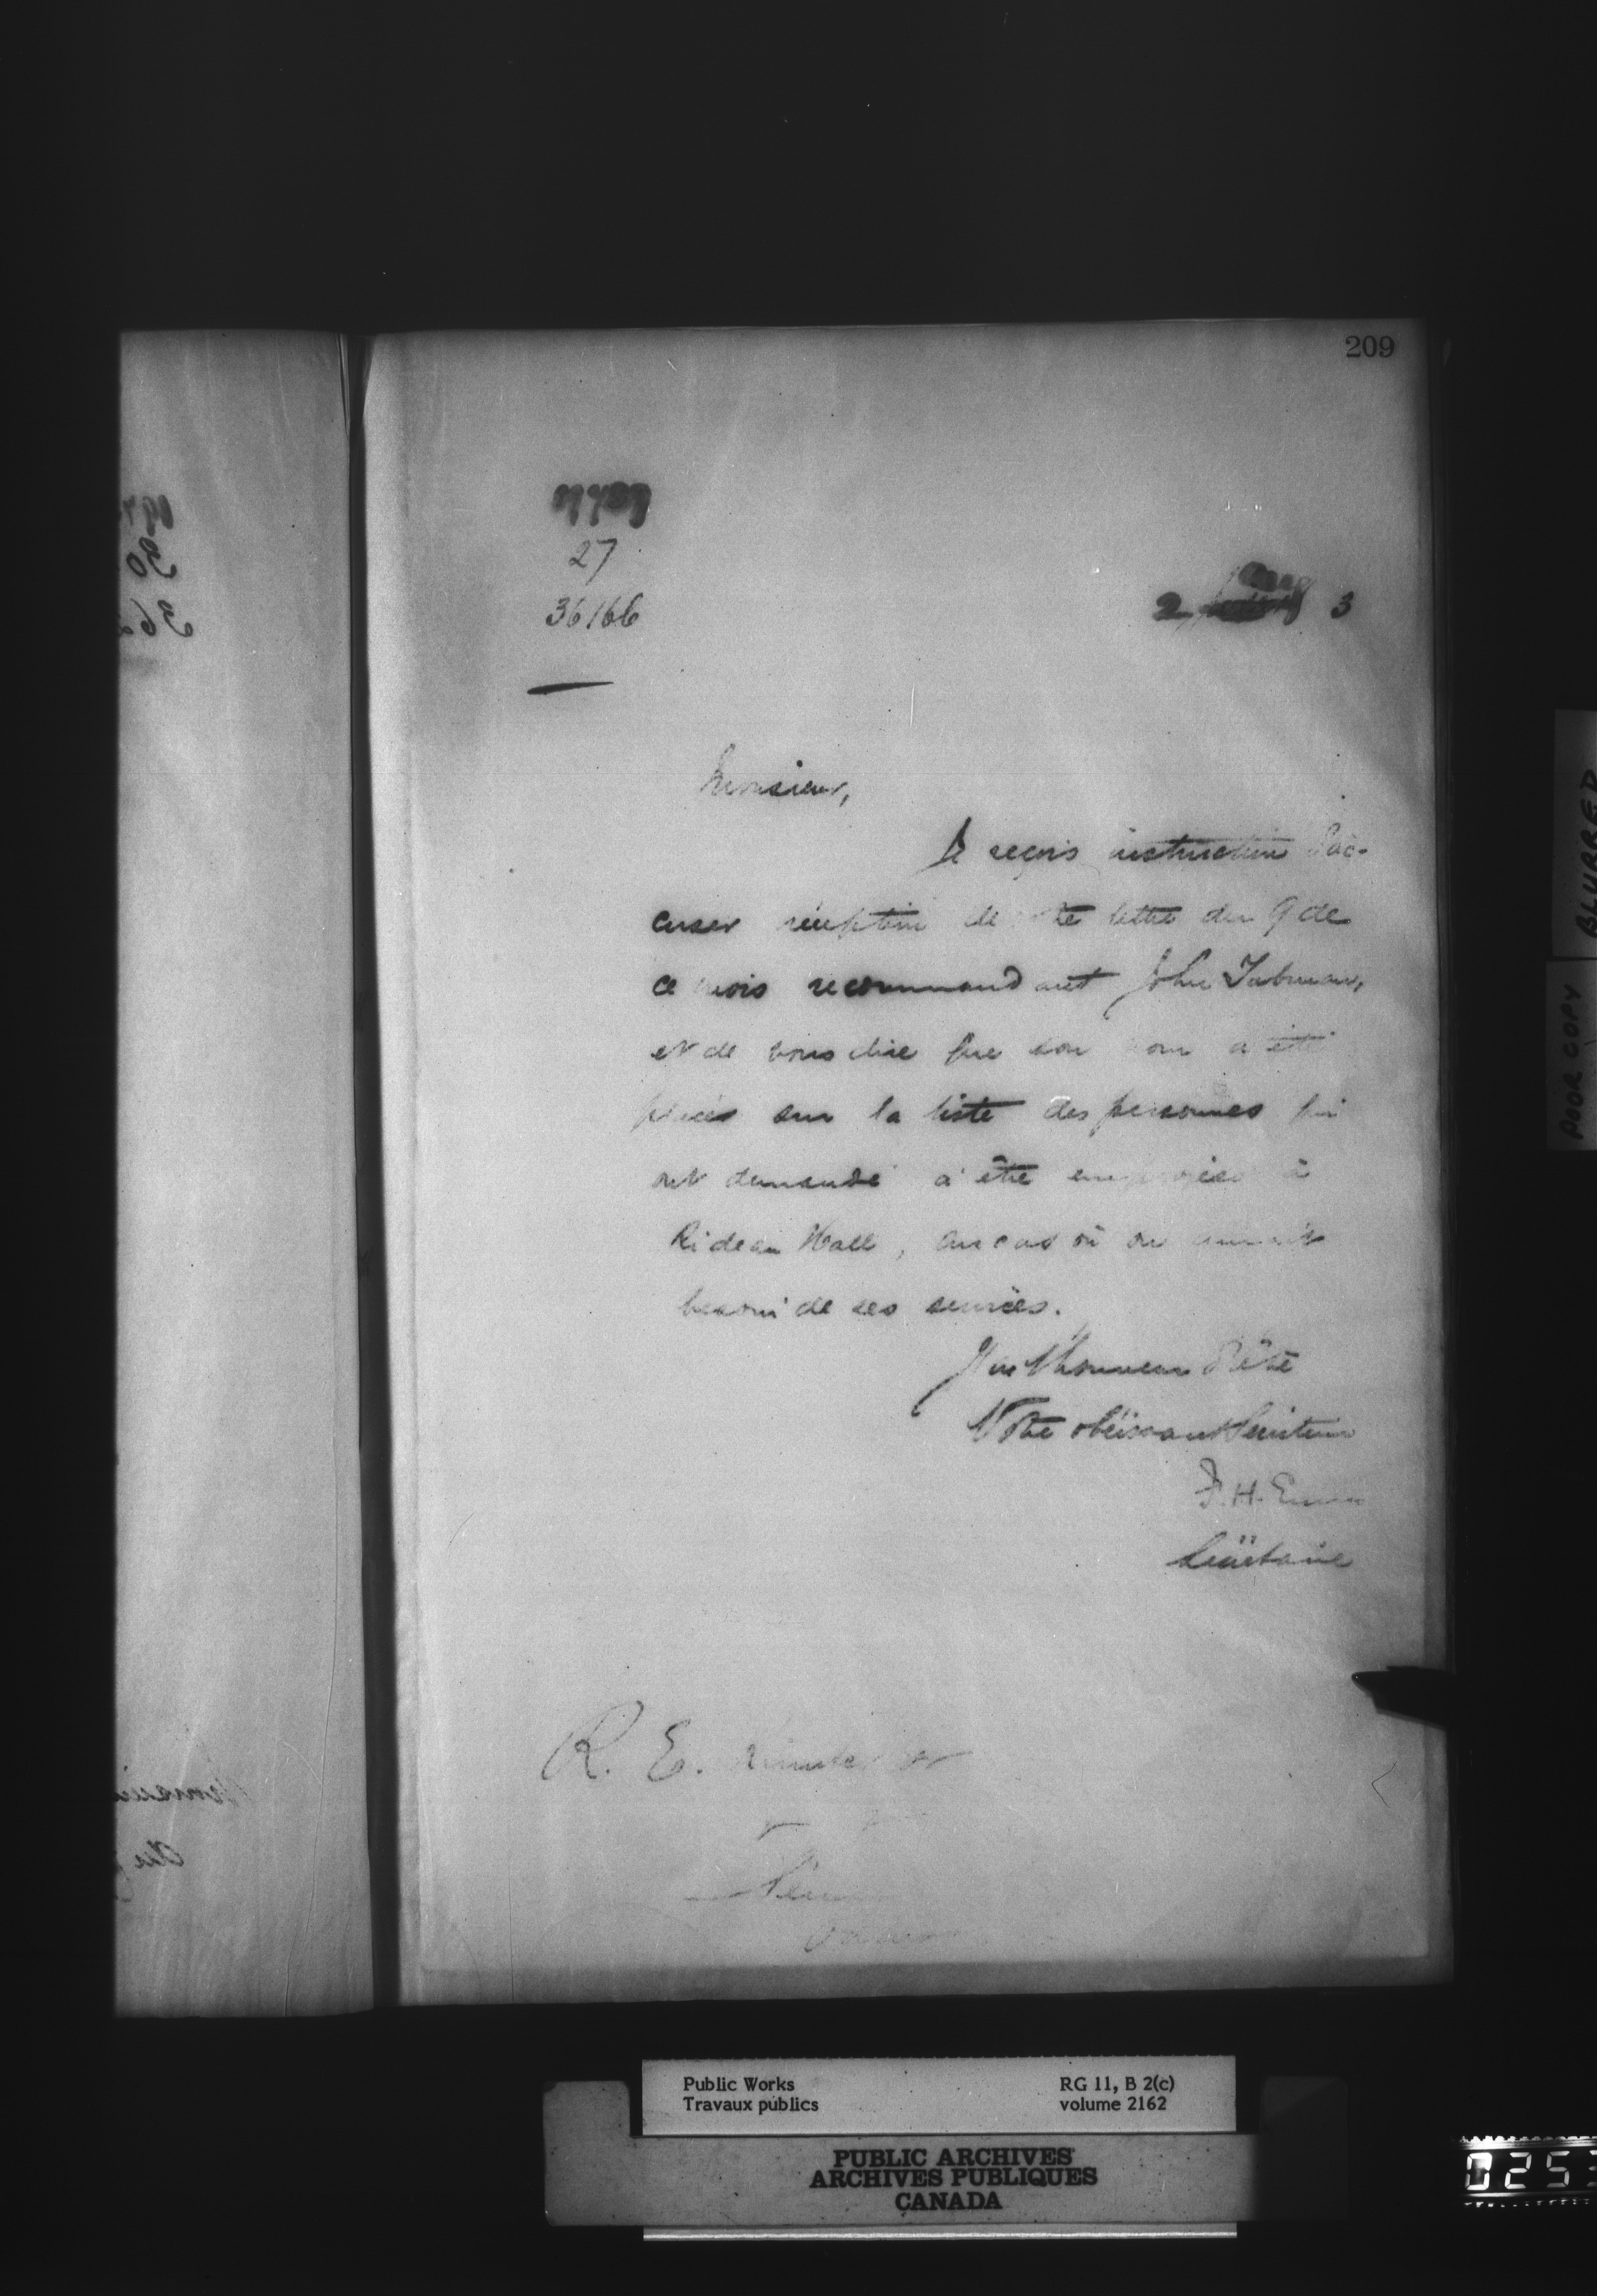 209
27
36166
2 3
Monsieur,
Je reçois instruction d'ac-
cuser réception de lettre du 9 de
ce mois recommandant John Tubman,
et de vous dire que son nom a été
placé sur la liste des personnes qui
ont demandé à être employées à
Rideau Hall, au cas où on aurait
besoin de ses services.
J'ai l'honneur d'être
Votre obéissant serviteur
F. H. Ennis
Secrétaire
R. E.
POOR COPY
BLURRED
Public Works
Travaux publics
RG 11, B 2(c)
volume 2162
PUBLIC ARCHIVES
ARCHIVES PUBLIQUES
CANADA